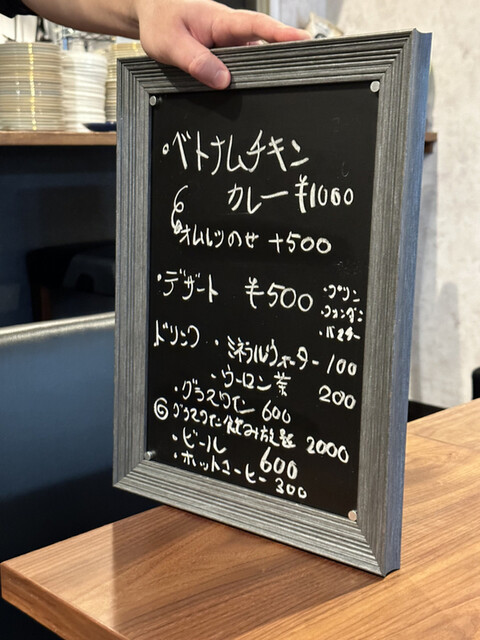 ・ベトナムチキン
カレー ¥1000
オムレツのせ +500
・デザート ¥500 ・プリン
・フォンダン
・バスチー
ドリンク ・ミネラルウォーター 100
・ウーロン茶 200
・グラスワイン 600
グラスワイン飲み放題 2000
・ビール 600
・ホットコーヒー 300